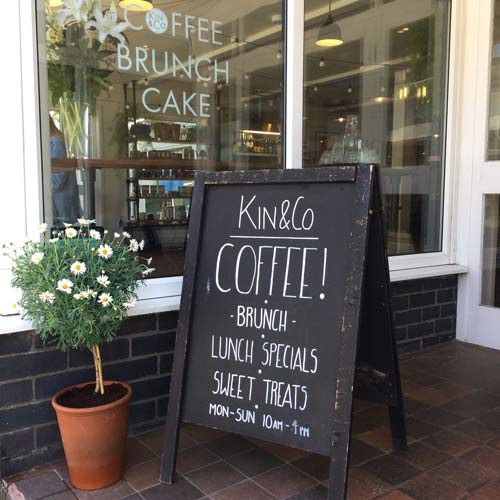 COFFEE
KIN
&CO
BRUNCH
CAKE
KIN&CO
COFFEE!
- BRUNCH -
LUNCH SPECIALS
SWEET TREATS
MON-SUN 10AM-4PM